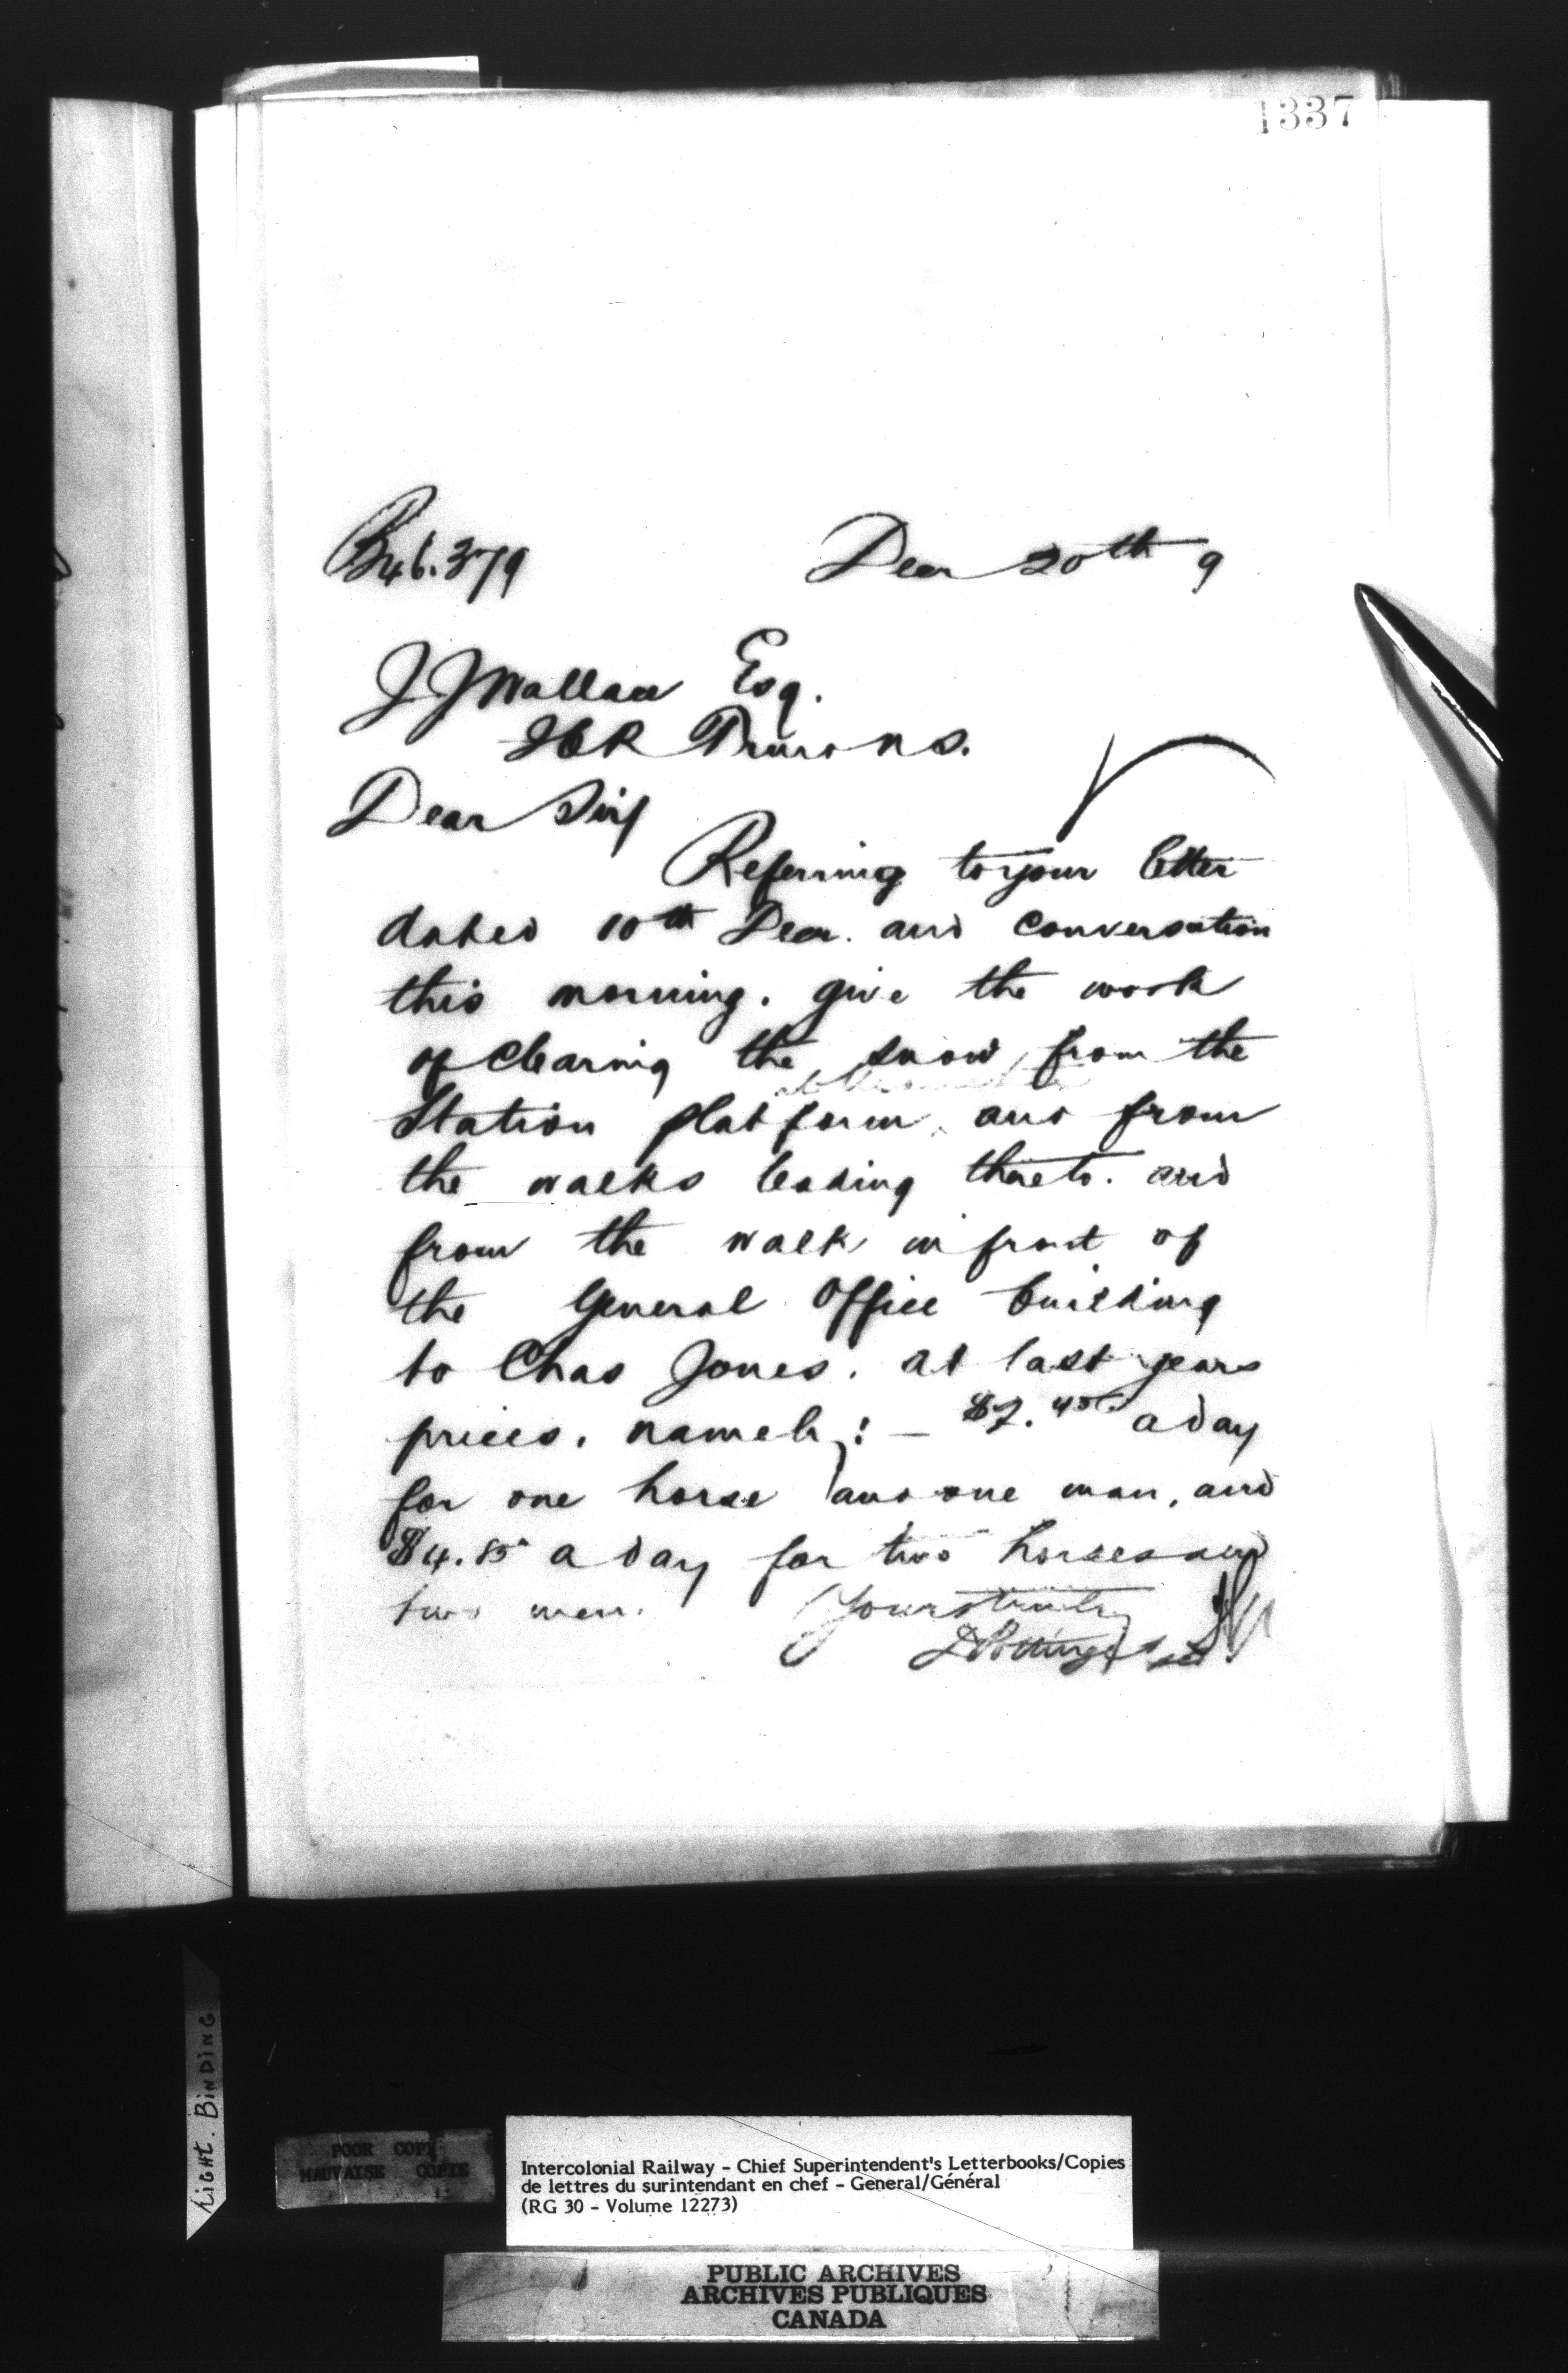 1337
B46.379 Decr 20th 9
J J Wallace Esq.
ICR Truro N.S.
Dear Sir/
Referring to your letter
dated 10th Decr. and conversation
this morning. give the work
of clearing the snow from the
Station platform, and from
the walks leading thereto. and
from the walk in front of
the General Office building
to Chas Jones. at last years
prices. namely: — $2.45 a day
for one horse and one man, and
$4.85 a day for two horses and
two men. Yours truly
D Pottinger
LiGHT. BiNDiNG
POOR COPY
MAUVAISE COPIE
Intercolonial Railway - Chief Superintendent's Letterbooks/Copies
de lettres du surintendant en chef - General/Général
(RG 30 - Volume 12273)
PUBLIC ARCHIVES
ARCHIVES PUBLIQUES
CANADA